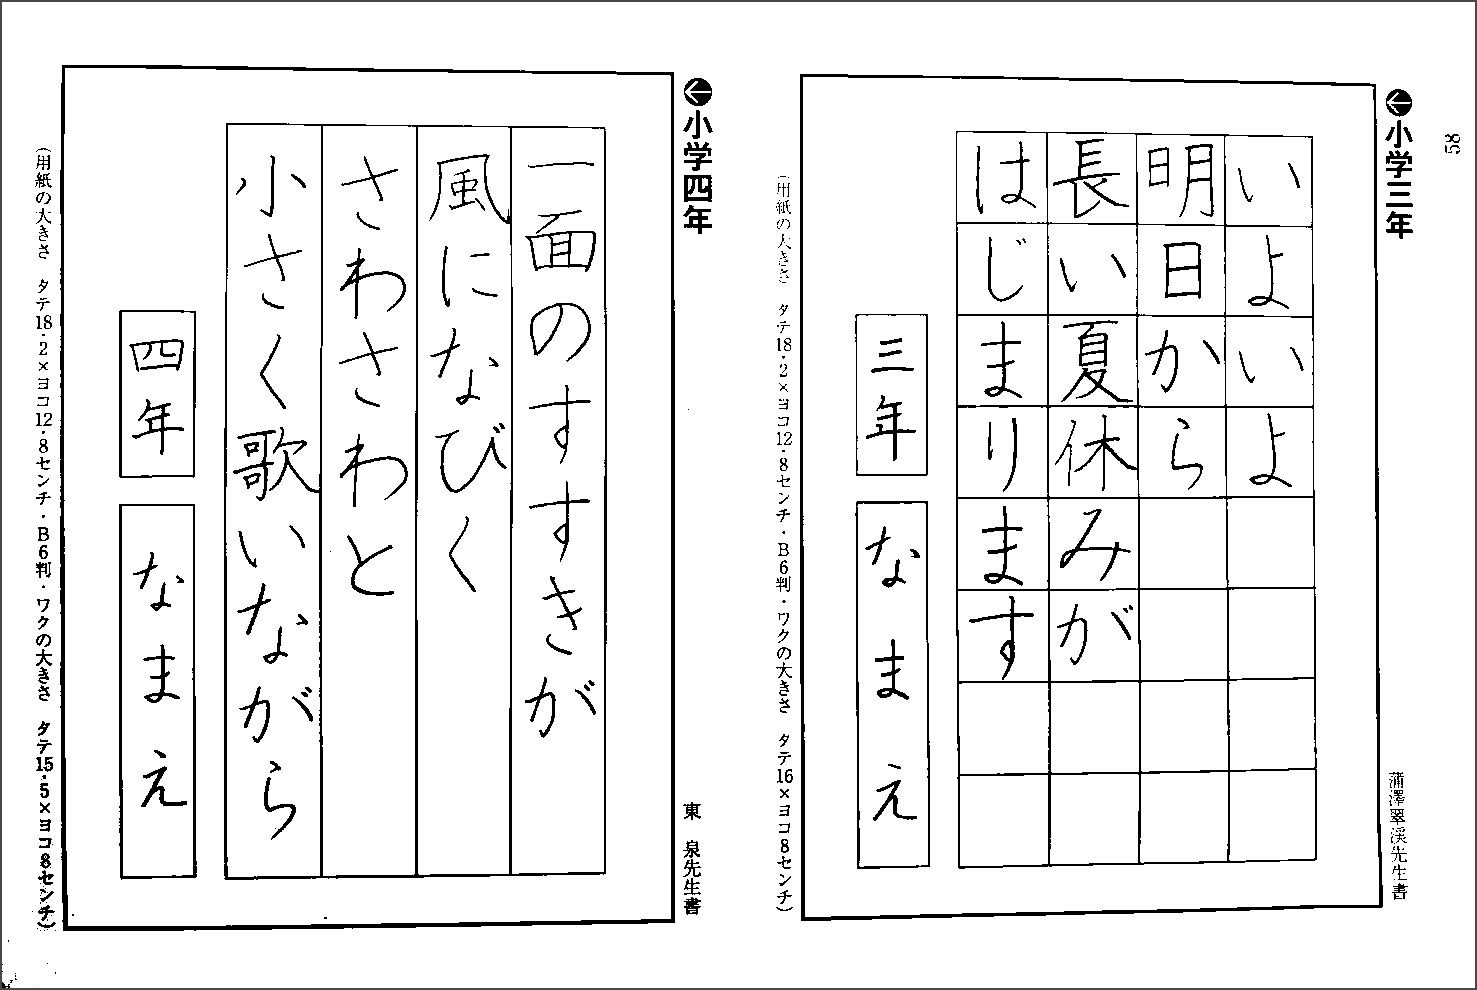 58
小学三年
いよいよ
明日から
長い夏休みが
はじまります
三年
なまえ
蒲澤翠渓先生書
(用紙の大きさ タテ18・2×ヨコ12・8センチ・B6判・ワクの大きさ タテ16×ヨコ8センチ)
小学四年
一面のすすきが
風になびく
さわさわと
小さく歌いながら
四年
なまえ
東 泉先生書
(用紙の大きさ タテ18・2×ヨコ12・8センチ・B6判・ワクの大きさ タテ15・5×ヨコ8センチ)